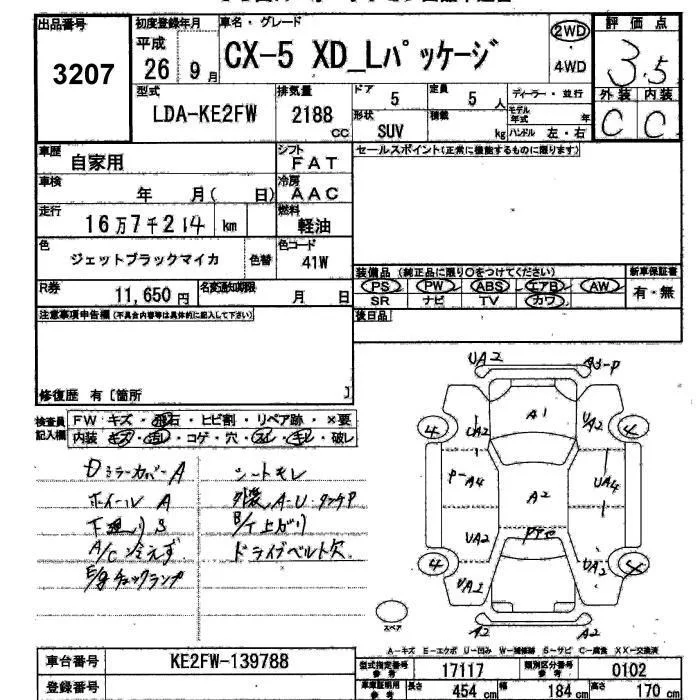 出品番号 初度登録年月 車名・グレード 評価点
3207 平成 26 9月 CX-5 XD_Lパッケージ 2WD 4WD 3.5
型式 排気量 ドア 5 定員 5人 ディーラー・並行 外装 内装
LDA-KE2FW 2188 CC 形状 SUV 積載 kg モデル年式 年 ハンドル 左・右 C C
車歴 自家用 シフト FAT セールスポイント(正常に機能するものに限ります)
車検 年 月( 日) 冷房 AAC
走行 16万7千214 km 燃料 軽油
色 ジェットブラックマイカ 色替 色コード 41W
装備品 (純正品に限り○をつけてください) 新車保証書
R券 11,650円 名変通知期限 月 日 PS PW ABS エアB AW 有・無
SR ナビ TV カワ
注意事項申告欄(不具合内容等は具体的に記入して下さい) 後日品
修復歴 有[箇所 ]
検査員記入欄 FW キズ・飛石・ヒビ割・リペア跡・×要
内装 キズ・汚レ・コゲ・穴・スレ・キレ・破レ
Dミラーカバー A シートキレ
ホイール A 外装 A・U・タッチP
下廻り S B/T上ガリ
A/C冷えず ドライブベルト欠
E/gチェックランプ
UA2 A3-P
A1
4 UA2 UA2 4
P-A4 A2 UA4
UA2 PTセ
4 UA2 UA2 4
A2 A2
スペア
A-キズ E-エクボ U-凹み W-補修跡 S-サビ C-腐食 XX-交換済
車台番号 KE2FW-139788 型式指定番号 参考 17117 類別区分番号 参考 0102
登録番号 車庫証明用 参考 長さ 454 cm 幅 184 cm 高さ 170 cm